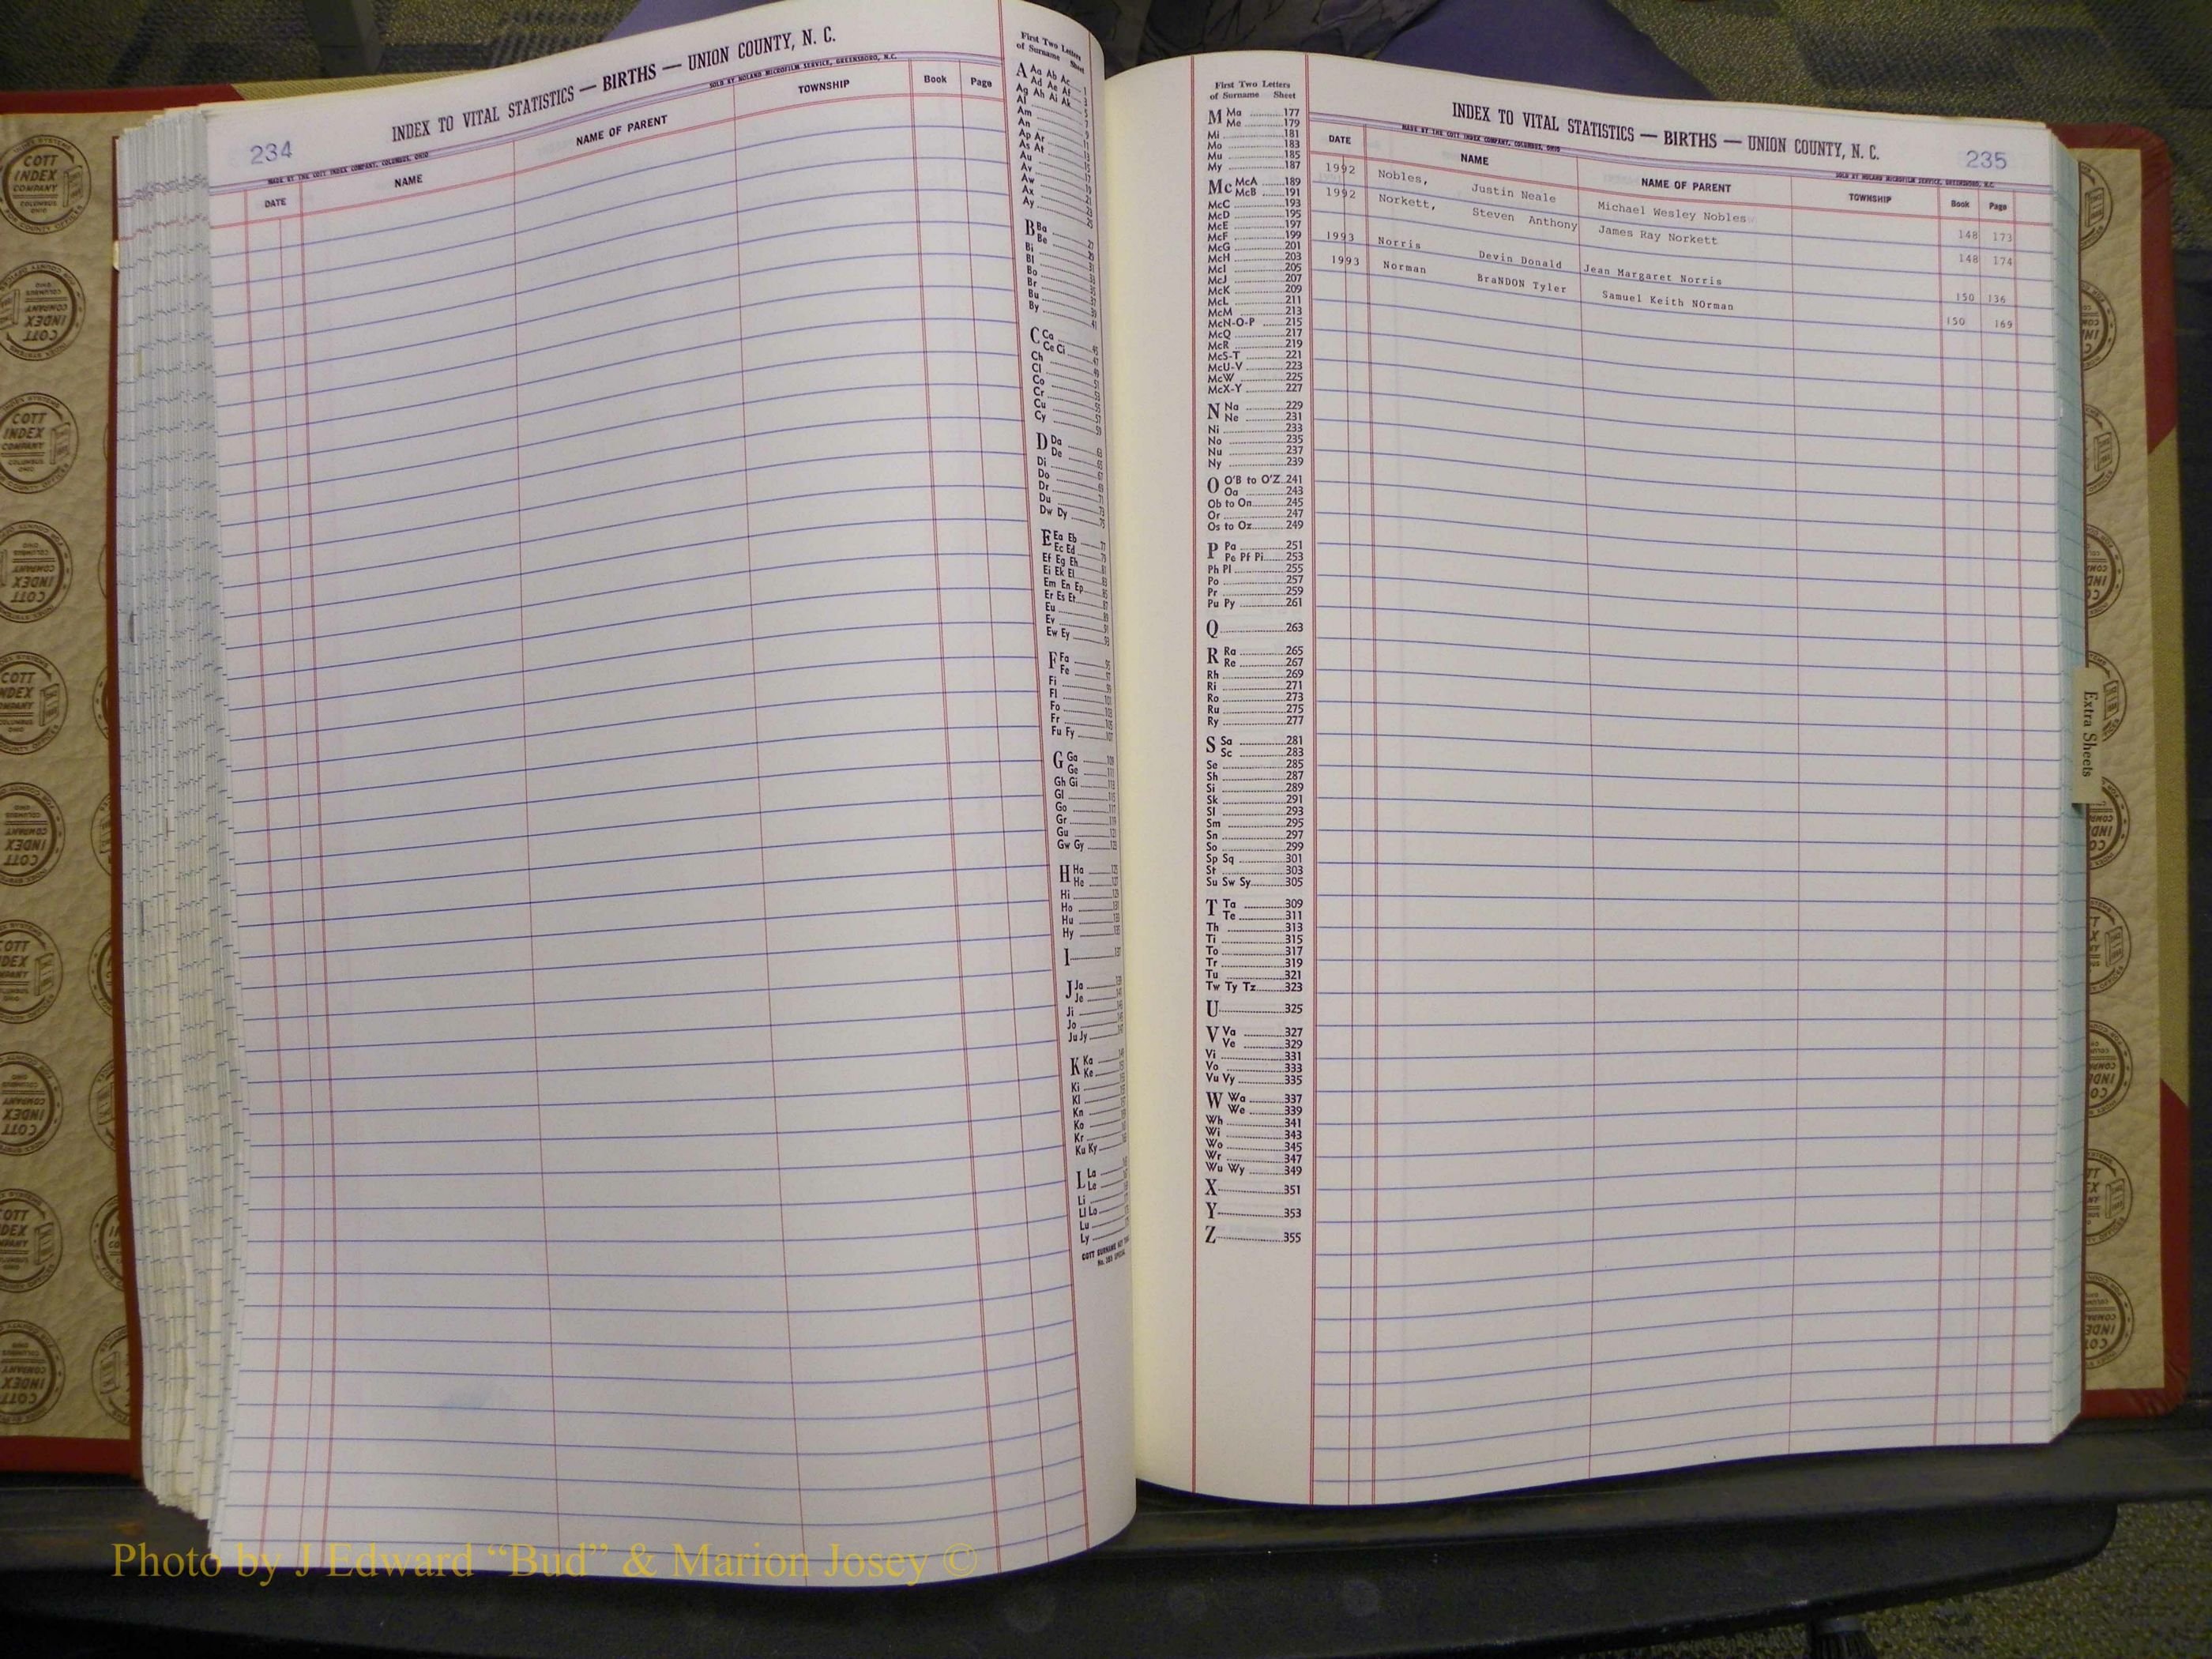 234
INDEX TO VITAL STATISTICS — BIRTHS — UNION COUNTY, N. C.
MADE BY THE COTT INDEX COMPANY, COLUMBUS, OHIO
SOLD BY NOLAND MICROFILM SERVICE, GREENSBORO, N.C.
DATE NAME NAME OF PARENT TOWNSHIP Book Page
First Two Letters
of Surname Sheet
A Aa Ab Ac
Ad Ae Af
Ag Ah Ai Ak
Al
Am
An
Ap Ar
As At
Au
Av
Aw
Ax
Ay
B Ba
Be
Bi
Bl
Bo
Br
Bu
By
C Ca
Ce Ci
Ch
Cl
Co
Cr
Cu
Cy
D Da
De
Di
Do
Dr
Du
Dw Dy
E Ea Eb
Ec Ed
Ef Eg Eh
Ei Ek El
Em En Ep
Er Es Et
Eu
Ev
Ew Ey
F Fa
Fe
Fi
Fl
Fo
Fr
Fu Fy
G Ga
Ge
Gh Gi
Gl
Go
Gr
Gu
Gw Gy
H Ha
He
Hi
Ho
Hu
Hy
I
J Ja
Je
Ji
Jo
Ju Jy
K Ka
Ke
Ki
Kl
Kn
Ko
Kr
Ku Ky
L La
Le
Li
Ll Lo
Lu
Ly
First Two Letters
of Surname Sheet
M Ma 177
Me 179
Mi 181
Mo 183
Mu 185
My 187
Mc McA 189
McB 191
McC 193
McD 195
McE 197
McF 199
McG 201
McH 203
McI 205
McJ 207
McK 209
McL 211
McM 213
McN-O-P 215
McQ 217
McR 219
McS-T 221
McU-V 223
McW 225
McX-Y 227
N Na 229
Ne 231
Ni 233
No 235
Nu 237
Ny 239
O O'B to O'Z 241
Oa 243
Ob to On 245
Or 247
Os to Oz 249
P Pa 251
Pe Pf Pi 253
Ph Pl 255
Po 257
Pr 259
Pu Py 261
Q 263
R Ra 265
Re 267
Rh 269
Ri 271
Ro 273
Ru 275
Ry 277
S Sa 281
Sc 283
Se 285
Sh 287
Si 289
Sk 291
Sl 293
Sm 295
Sn 297
So 299
Sp Sq 301
St 303
Su Sw Sy 305
T Ta 309
Te 311
Th 313
Ti 315
To 317
Tr 319
Tu 321
Tw Ty Tz 323
U 325
V Va 327
Ve 329
Vi 331
Vo 333
Vu Vy 335
W Wa 337
We 339
Wh 341
Wi 343
Wo 345
Wr 347
Wu Wy 349
X 351
Y 353
Z 355
INDEX TO VITAL STATISTICS — BIRTHS — UNION COUNTY, N. C.
235
MADE BY THE COTT INDEX COMPANY, COLUMBUS, OHIO
SOLD BY NOLAND MICROFILM SERVICE, GREENSBORO, N.C.
DATE NAME NAME OF PARENT TOWNSHIP Book Page
1992 Nobles, Justin Neale Michael Wesley Nobles 148 173
1992 Norkett, Steven Anthony James Ray Norkett 148 174
1993 Norris Devin Donald Jean Margaret Norris 150 136
1993 Norman BraNDON Tyler Samuel Keith NOrman 150 169
Extra Sheets
COTT
INDEX
COMPANY
COLUMBUS
OHIO
Photo by J Edward “Bud” & Marion Josey ©